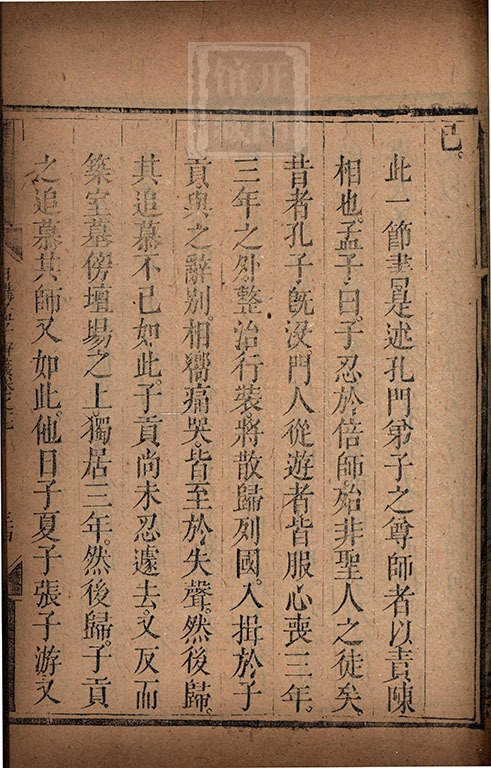 已。
此一節書是述孔門弟子之尊師者以責陳
相也。孟子曰。子忍於倍師。殆非聖人之徒矣。
昔者孔子旣沒。門人從遊者皆服心喪三年。
三年之外。整治行裝。將散歸列國。入揖於子
貢。與之辭別。相嚮痛哭。皆至於失聲。然後歸。
其追慕不已如此。子貢尚未忍遽去。又反而
築室墓傍壇場之上。獨居三年。然後歸。子貢
之追慕其師又如此。他日子夏子張子游又